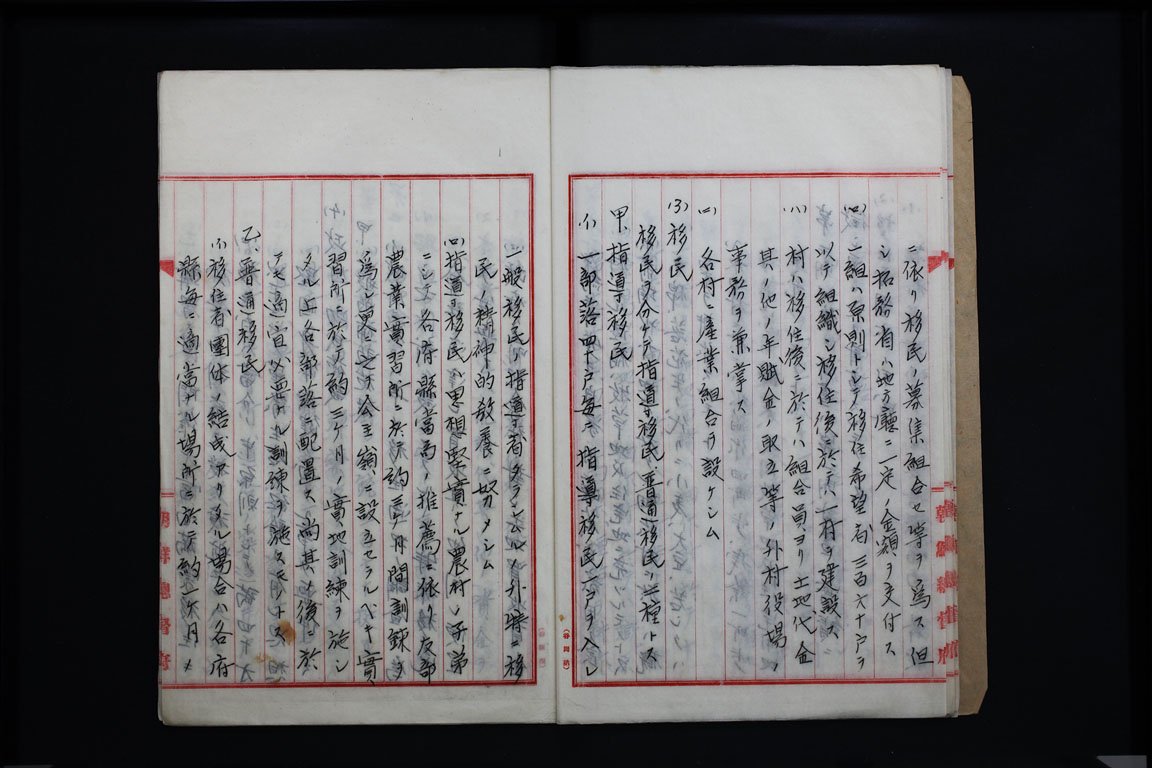 ニ依リ移民ノ募集組合セ等ヲ爲ス但
シ拓務省ハ地方廳ニ一定ノ金額ヲ交付ス
(ロ) 一組ハ原則トシテ移住希望者三百六十戸ヲ
以テ組織シ移住後ニ於テハ一村ヲ建設ス
(ハ) 村ハ移住後ニ於テハ組合員ヨリ土地代金
其ノ他ノ年賦金ノ取立等ノ外村役場ノ
事務ヲ兼掌ス
(ニ) 各村ニ産業組合ヲ設ケシム
(3) 移民
移民ヲ分ケテ指導移民、普通移民ノ二種トス
甲、指導移民
(イ) 一部落四十戸毎ニ指導移民一戸ヲ入レ
一般移民ノ指導者タラシムルノ外特ニ移
民ノ精神的教養ニ努メシム
(ロ) 指導移民ハ思想堅實ナル農村ノ子弟
ニシテ各府縣當局ノ推薦ニ依リ友部
農業實習所ニ於テ約三ケ月間訓練ヲ
爲シ更ニ之ヲ公主嶺ニ設立セラルベキ實
習所ニ於テ約三ケ月ノ實地訓練ヲ施シ
タル上各部落ニ配置ス尚其ノ後ニ於
テモ適宜必要ナル訓練ヲ施スモノトス
乙、普通移民
(イ) 移住者團体ノ結成アリタル場合ハ各府
縣毎ニ適當ナル場所ニ於テ約一ケ月
朝鮮總督府